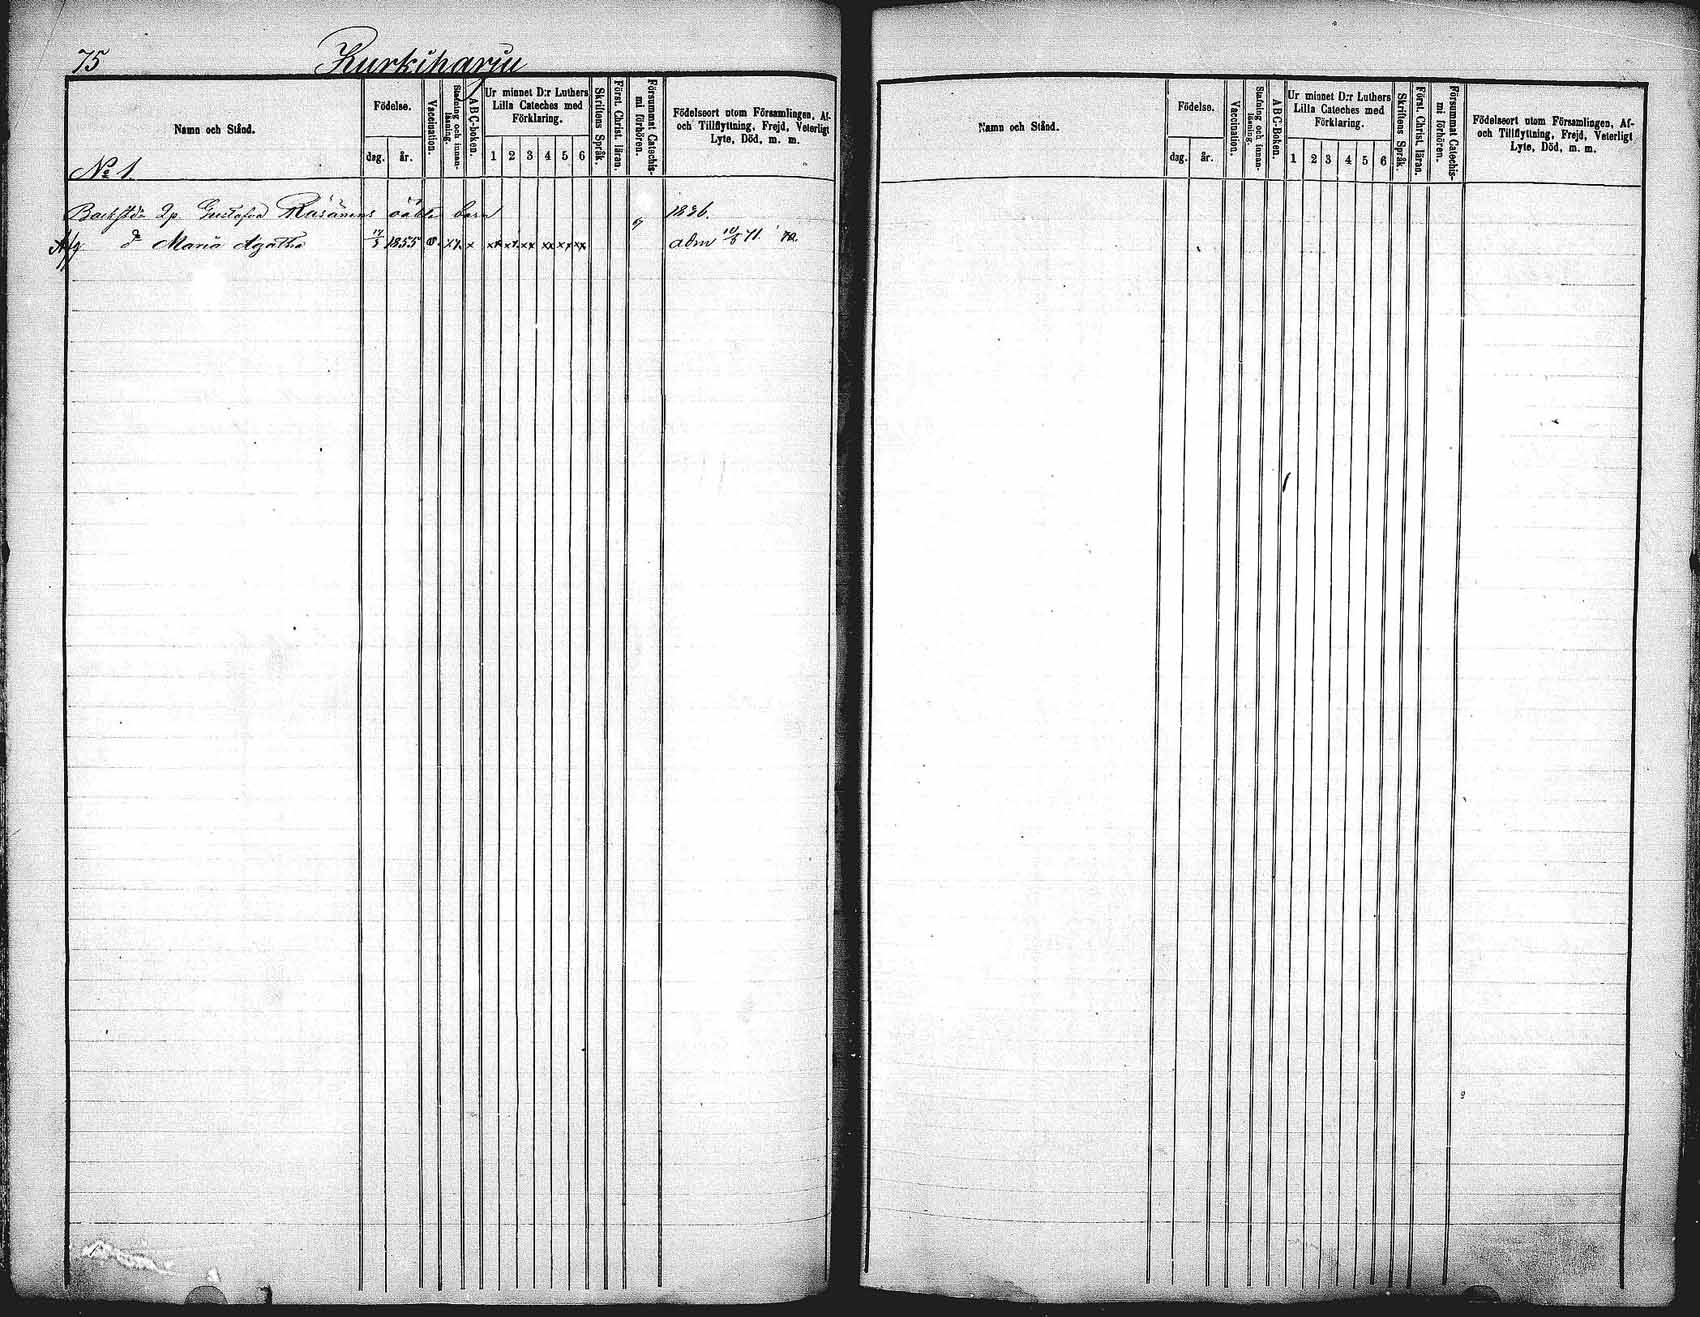 75 Kurkiharju
Namn och Stånd.
Födelse.
dag. år.
Vaccination.
Stafning och innanläsning.
A B C-boken.
Ur minnet D:r Luthers Lilla Cateches med Förklaring.
1 2 3 4 5 6
Skriftens Språk.
Först. Christ. läran.
Försummat Catechismi förhören.
Födelseort utom Församlingen, Af- och Tillflyttning, Frejd, Veterligt Lyte, Död, m. m.
No 1.
Gustafsd Räsänens oäkta barn
d Maria Agatha 1855 x x x xx xx xx xx xx adm 71.
Namn och Stånd.
Födelse.
dag. år.
Vaccination.
Stafning och innanläsning.
A B C-Boken.
Ur minnet D:r Luthers Lilla Cateches med Förklaring.
1 2 3 4 5 6
Skriftens Språk.
Först. Christ. läran.
Försummat Catechismi förhören.
Födelseort utom Församlingen, Af- och Tillflyttning, Frejd, Veterligt Lyte, Död, m. m.